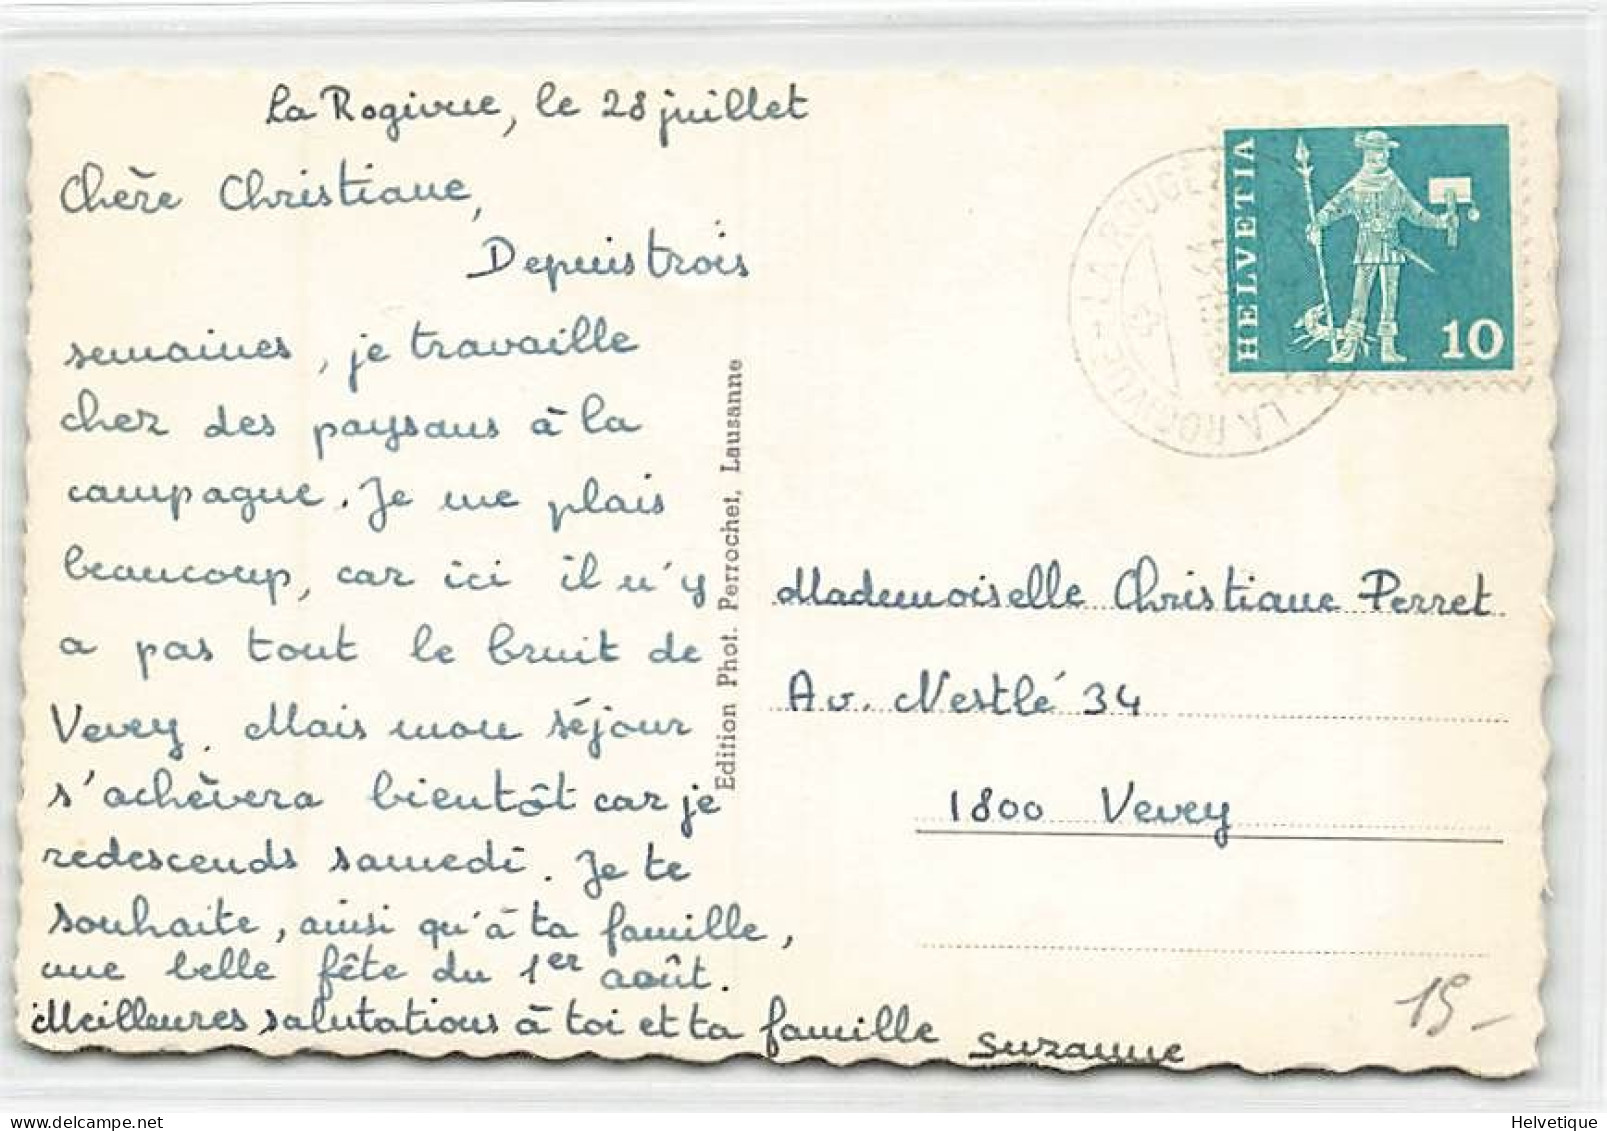 La Rogivue, le 28 juillet
Chère Christiane,
Depuis trois
semaines, je travaille
chez des paysans à la
campagne. Je me plais
beaucoup, car ici il n'y
a pas tout le bruit de
Vevey. Mais mon séjour
s'achèvera bientôt car je
redescends samedi. Je te
souhaite, ainsi qu'à ta famille,
une belle fête du 1er août.
Meilleures salutations à toi et ta famille Suzanne
Edition Phot. Perrochet, Lausanne
HELVETIA
10
LA ROGIVUE - LA ROUGE
Mademoiselle Christiane Perret
Av. Nestlé 34
1800 Vevey
15-
Helvetique